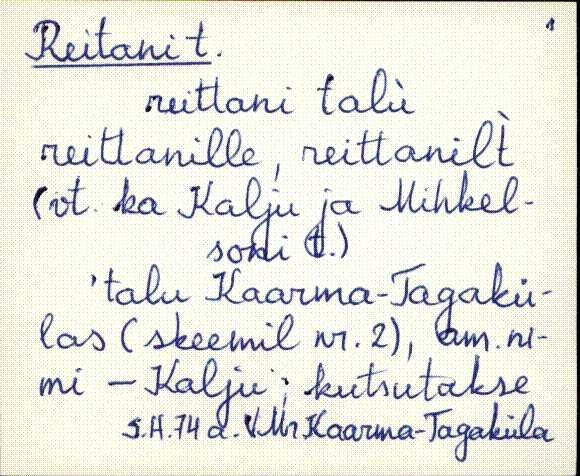 1
Reitani t.
reittani talù
reittanille, reittanilt̀
(vt. ka Kalju ja Mihkel-
soni t.)
'talu Kaarma-Tagakü-
las (skeemil nr. 2), am. ni-
mi – Kalju'; kutsutakse
S.H. 74 a. V.Mr Kaarma-Tagaküla